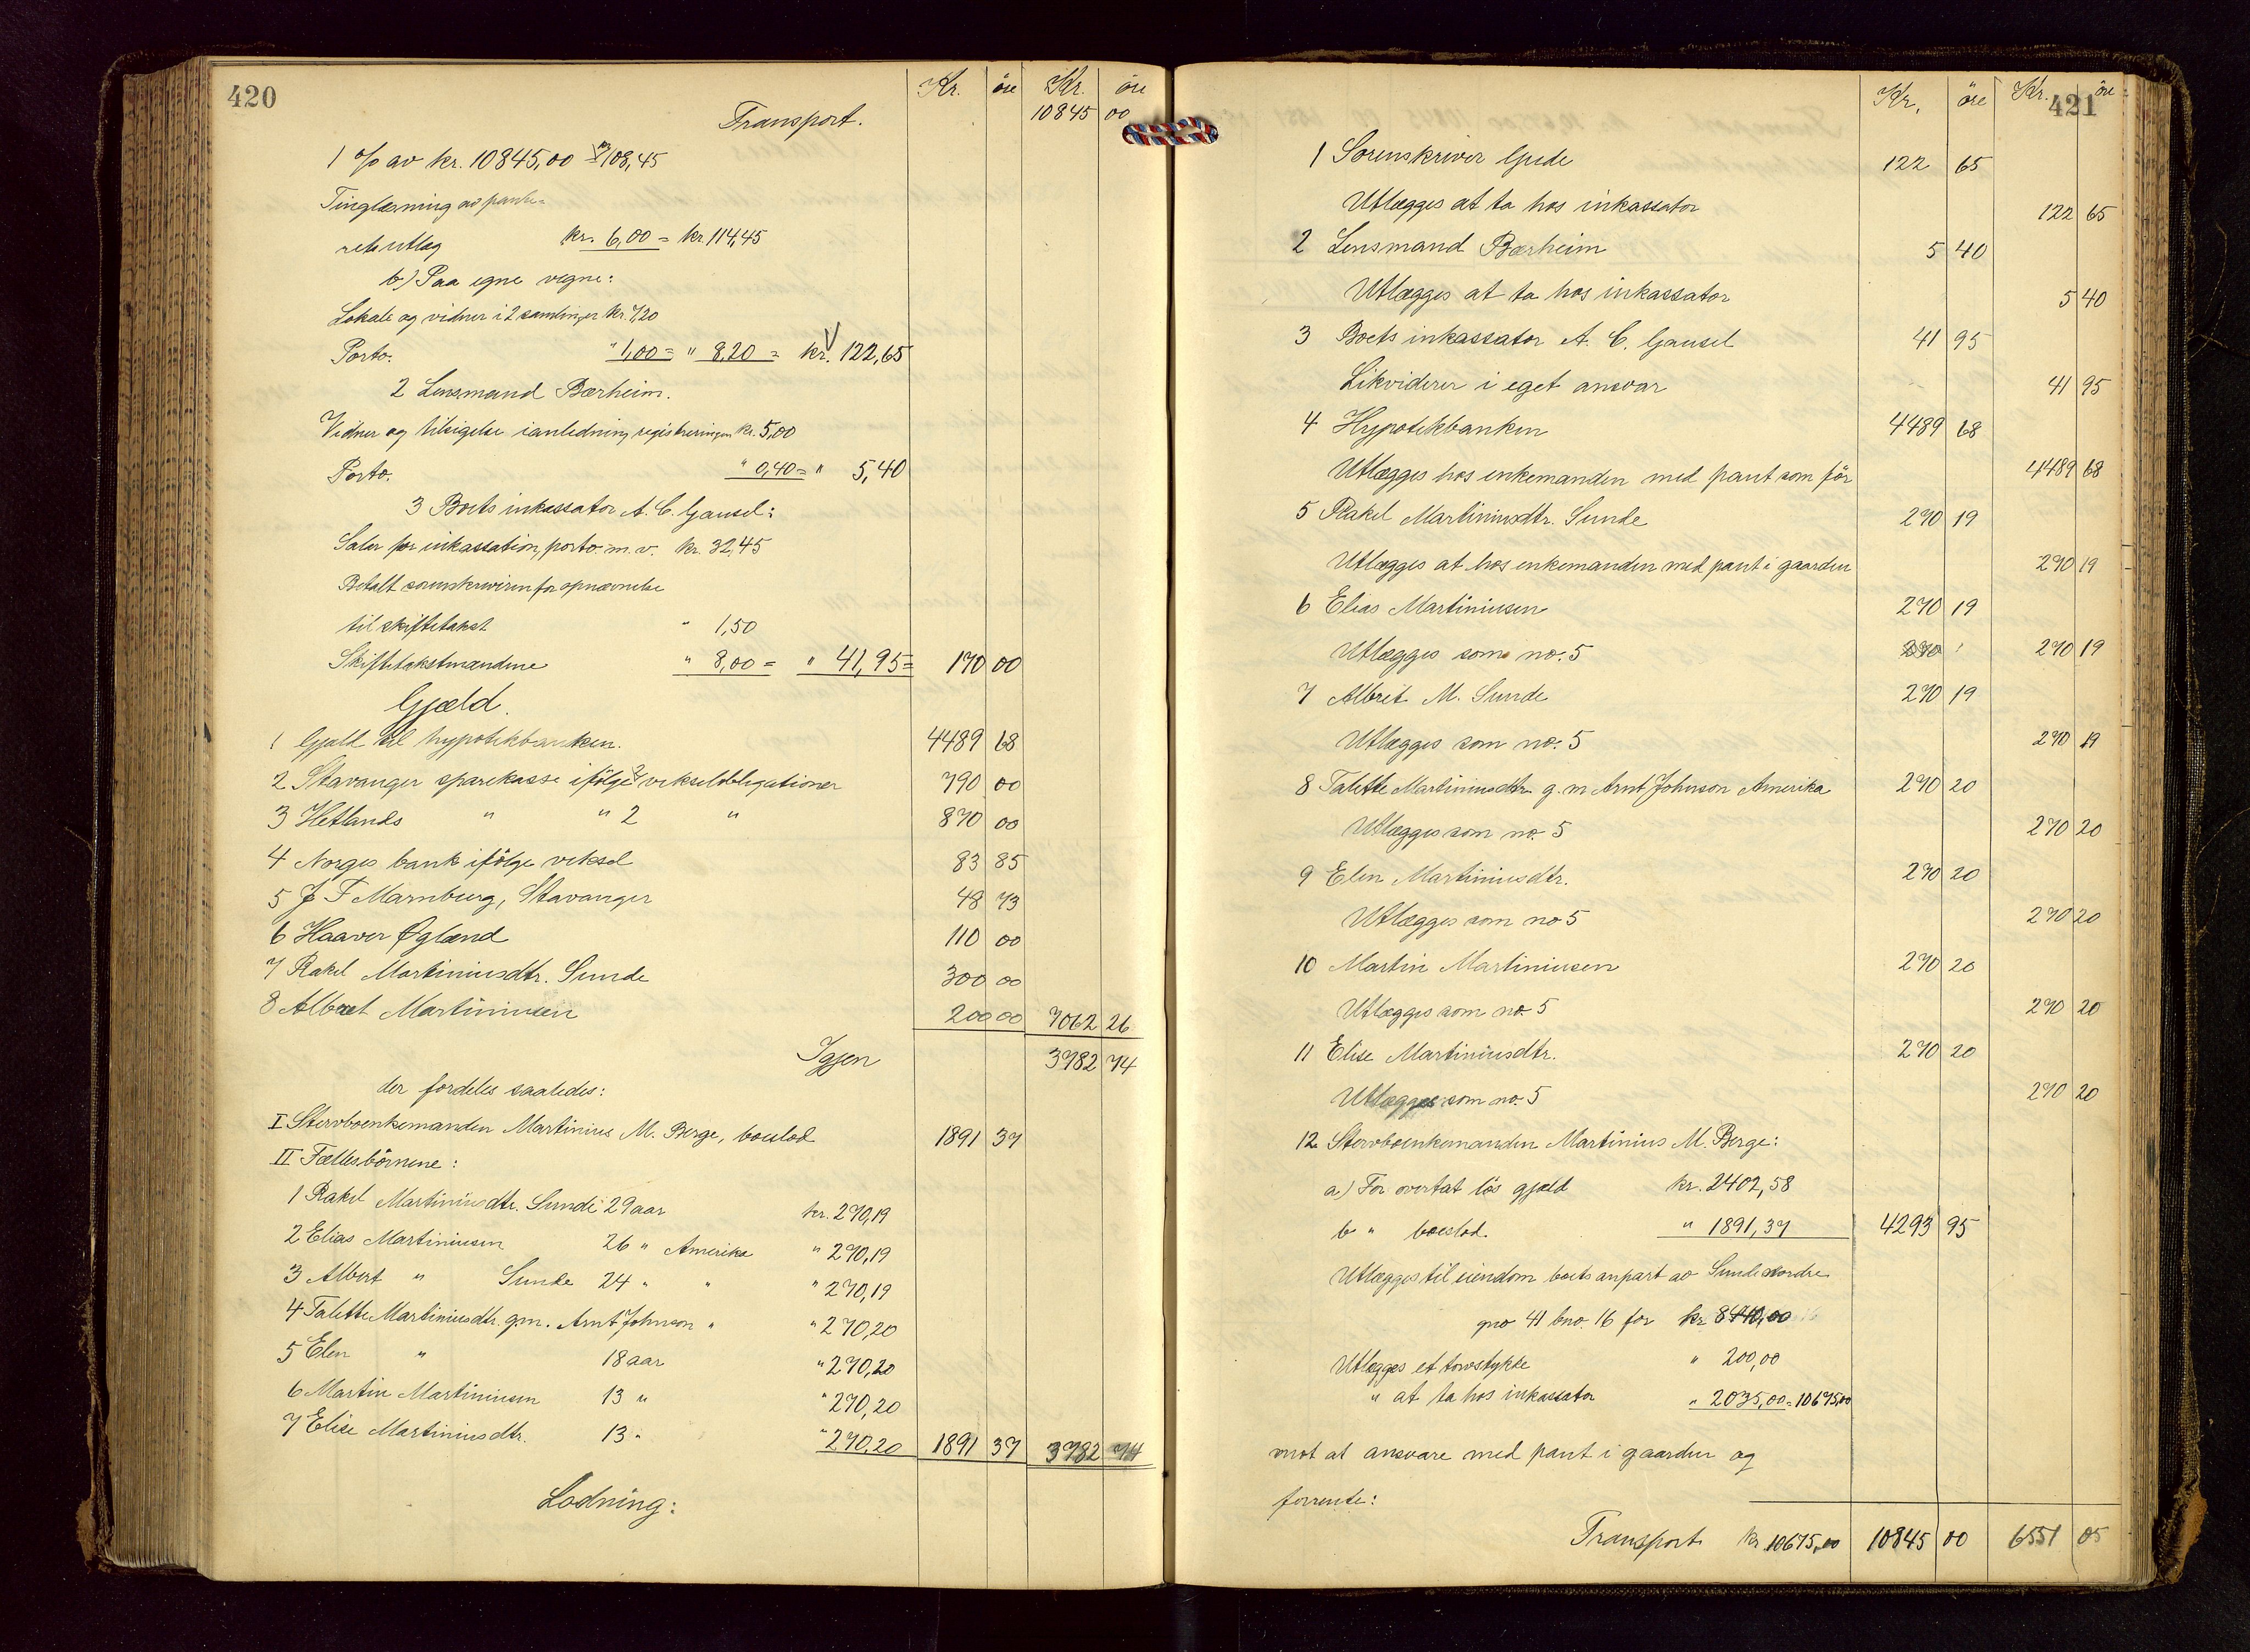 420
Kr. öre Kr. öre
Transport. 10845 00
1 o/o av kr. 10845,00 108,45
Tinglæsning av pante-
retsutlæg kr. 6,00 = kr. 114,45
b) Paa egne vegne:
Lokale og vidner i 2 samlinger kr. 7,20
Porto. " 1,00 = " 8,20 = kr. 122,65
2 Lensmand Bærheim.
Vidner og tilsigelse i anledning registreringen kr. 5,00
Porto. " 0,40 = " 5,40
3 Boets inkassator A. C. Gausel:
Salær for inkassation, porto m. v. kr. 32,45
Betalt sorenskriveren for opnævnelse
til skiftetakst " 1,50
Skiftetakstmændene " 8,00 = " 41,95 = 170 00
Gjæld.
1 Gjæld til hypotekbanken. 4489 68
2 Stavanger sparekasse ifölge 2 vekselobligationer 790 00
3 Hetlands " " 2 " 870 00
4 Norges bank ifölge veksel 83 85
5 J F Marnburg, Stavanger 48 73
6 Haaver Øglænd 110 00
7 Rakel Martiniusdtr. Sunde 300 00
8 Albret Martiniusen 200 00 7062 26
Igjen 3782 74
der fordeles saaledes:
I Stervboenkemanden Martinius M. Berge, boeslod 1891 37
II Fællesbörnene:
1 Rakel Martiniusdtr. Sunde 29 aar kr. 270,19
2 Elias Martiniusen 26 " Amerika " 270,19
3 Albert " Sunde 24 " " " 270,19
4 Talette Martiniusdtr. g.m. Arnt Johnson " " 270,20
5 Elen " 18 aar " 270,20
6 Martin Martiniusen 13 " " 270,20
7 Elise Martiniusdtr. 13 " " 270,20 1891 37 3782 74
Lodning:
421
Kr. öre Kr. öre
1 Sorenskriver Gjede 122 65
Utlægges at ta hos inkassator 122 65
2 Lensmand Bærheim 5 40
Utlægges at ta hos inkassator 5 40
3 Boets inkassator A. C. Gausel 41 95
Likviderer i eget ansvar 41 95
4 Hypotekbanken 4489 68
Utlægges hos enkemanden med pant som för 4489 68
5 Rakel Martiniusdtr. Sunde 270 19
Utlægges at hos enkemanden med pant i gaarden 270 19
6 Elias Martiniusen 270 19
Utlægges som no. 5 270 270 19
7 Albret M. Sunde 270 19
Utlægges som no. 5 270 19
8 Talette Martiniusdtr. g. m Arnt Johnson Amerika 270 20
Utlægges som no. 5 270 20
9 Elen Martiniusdtr. 270 20
Utlægges som no 5 270 20
10 Martin Martiniusen 270 20
Utlægges som no. 5 270 20
11 Elise Martiniusdtr. 270 20
Utlægges som no. 5 270 20
12 Stervboenkemanden Martinius M. Berge:
a) For overtat lös gjæld kr. 2402,58
b " boeslod. " 1891,37 4293 95
Utlægges til eiendom boets anpart av Sunde nordre
gno 41 bno. 16 for kr. 8440,00
Utlægges et torvstykke " 200,00
" at ta hos inkassator " 2035,00 = 10675,00
mot at ansvare med pant i gaarden og
forrente:
Transport kr. 10675,00 10845 00 6551 05